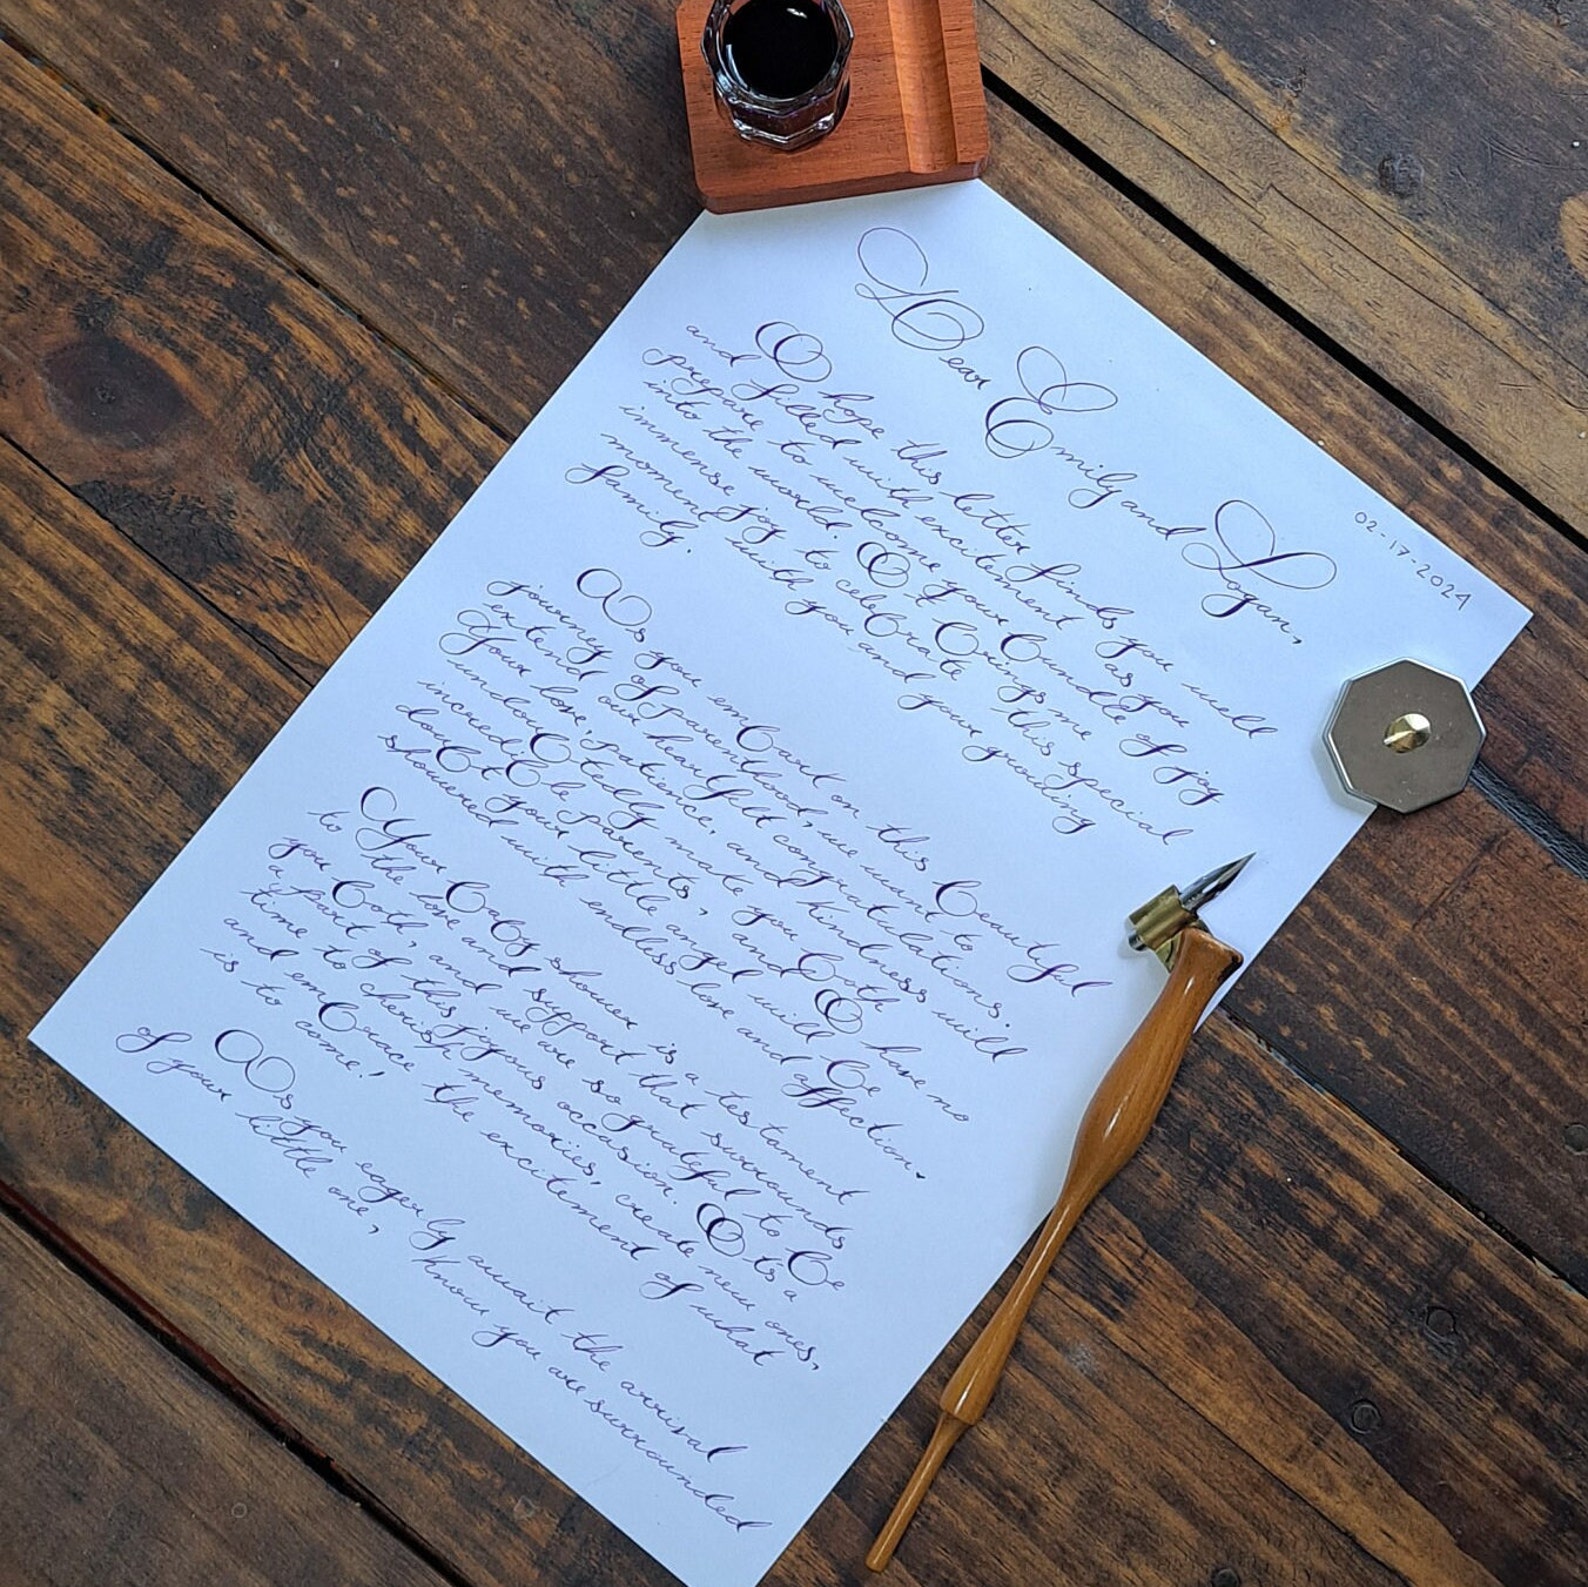 02-17-2024
Dear Emily and Logan,
I hope this letter finds you well
and filled with excitement as you
prepare to welcome your bundle of joy
into the world. It brings me
immense joy to celebrate this special
moment with you and your growing
family.
As you embark on this beautiful
journey of parenthood, we want to
extend our heartfelt congratulations.
Your love, patience, and kindness will
undoubtedly make you both
incredible parents, and I have no
doubt your little angel will be
showered with endless love and affection.
Your baby shower is a testament
to the love and support that surrounds
you both, and we are so grateful to be
a part of this joyous occasion. It's a
time to cherish memories, create new ones,
and embrace the excitement of what
is to come!
As you eagerly await the arrival
of your little one, know you are surrounded